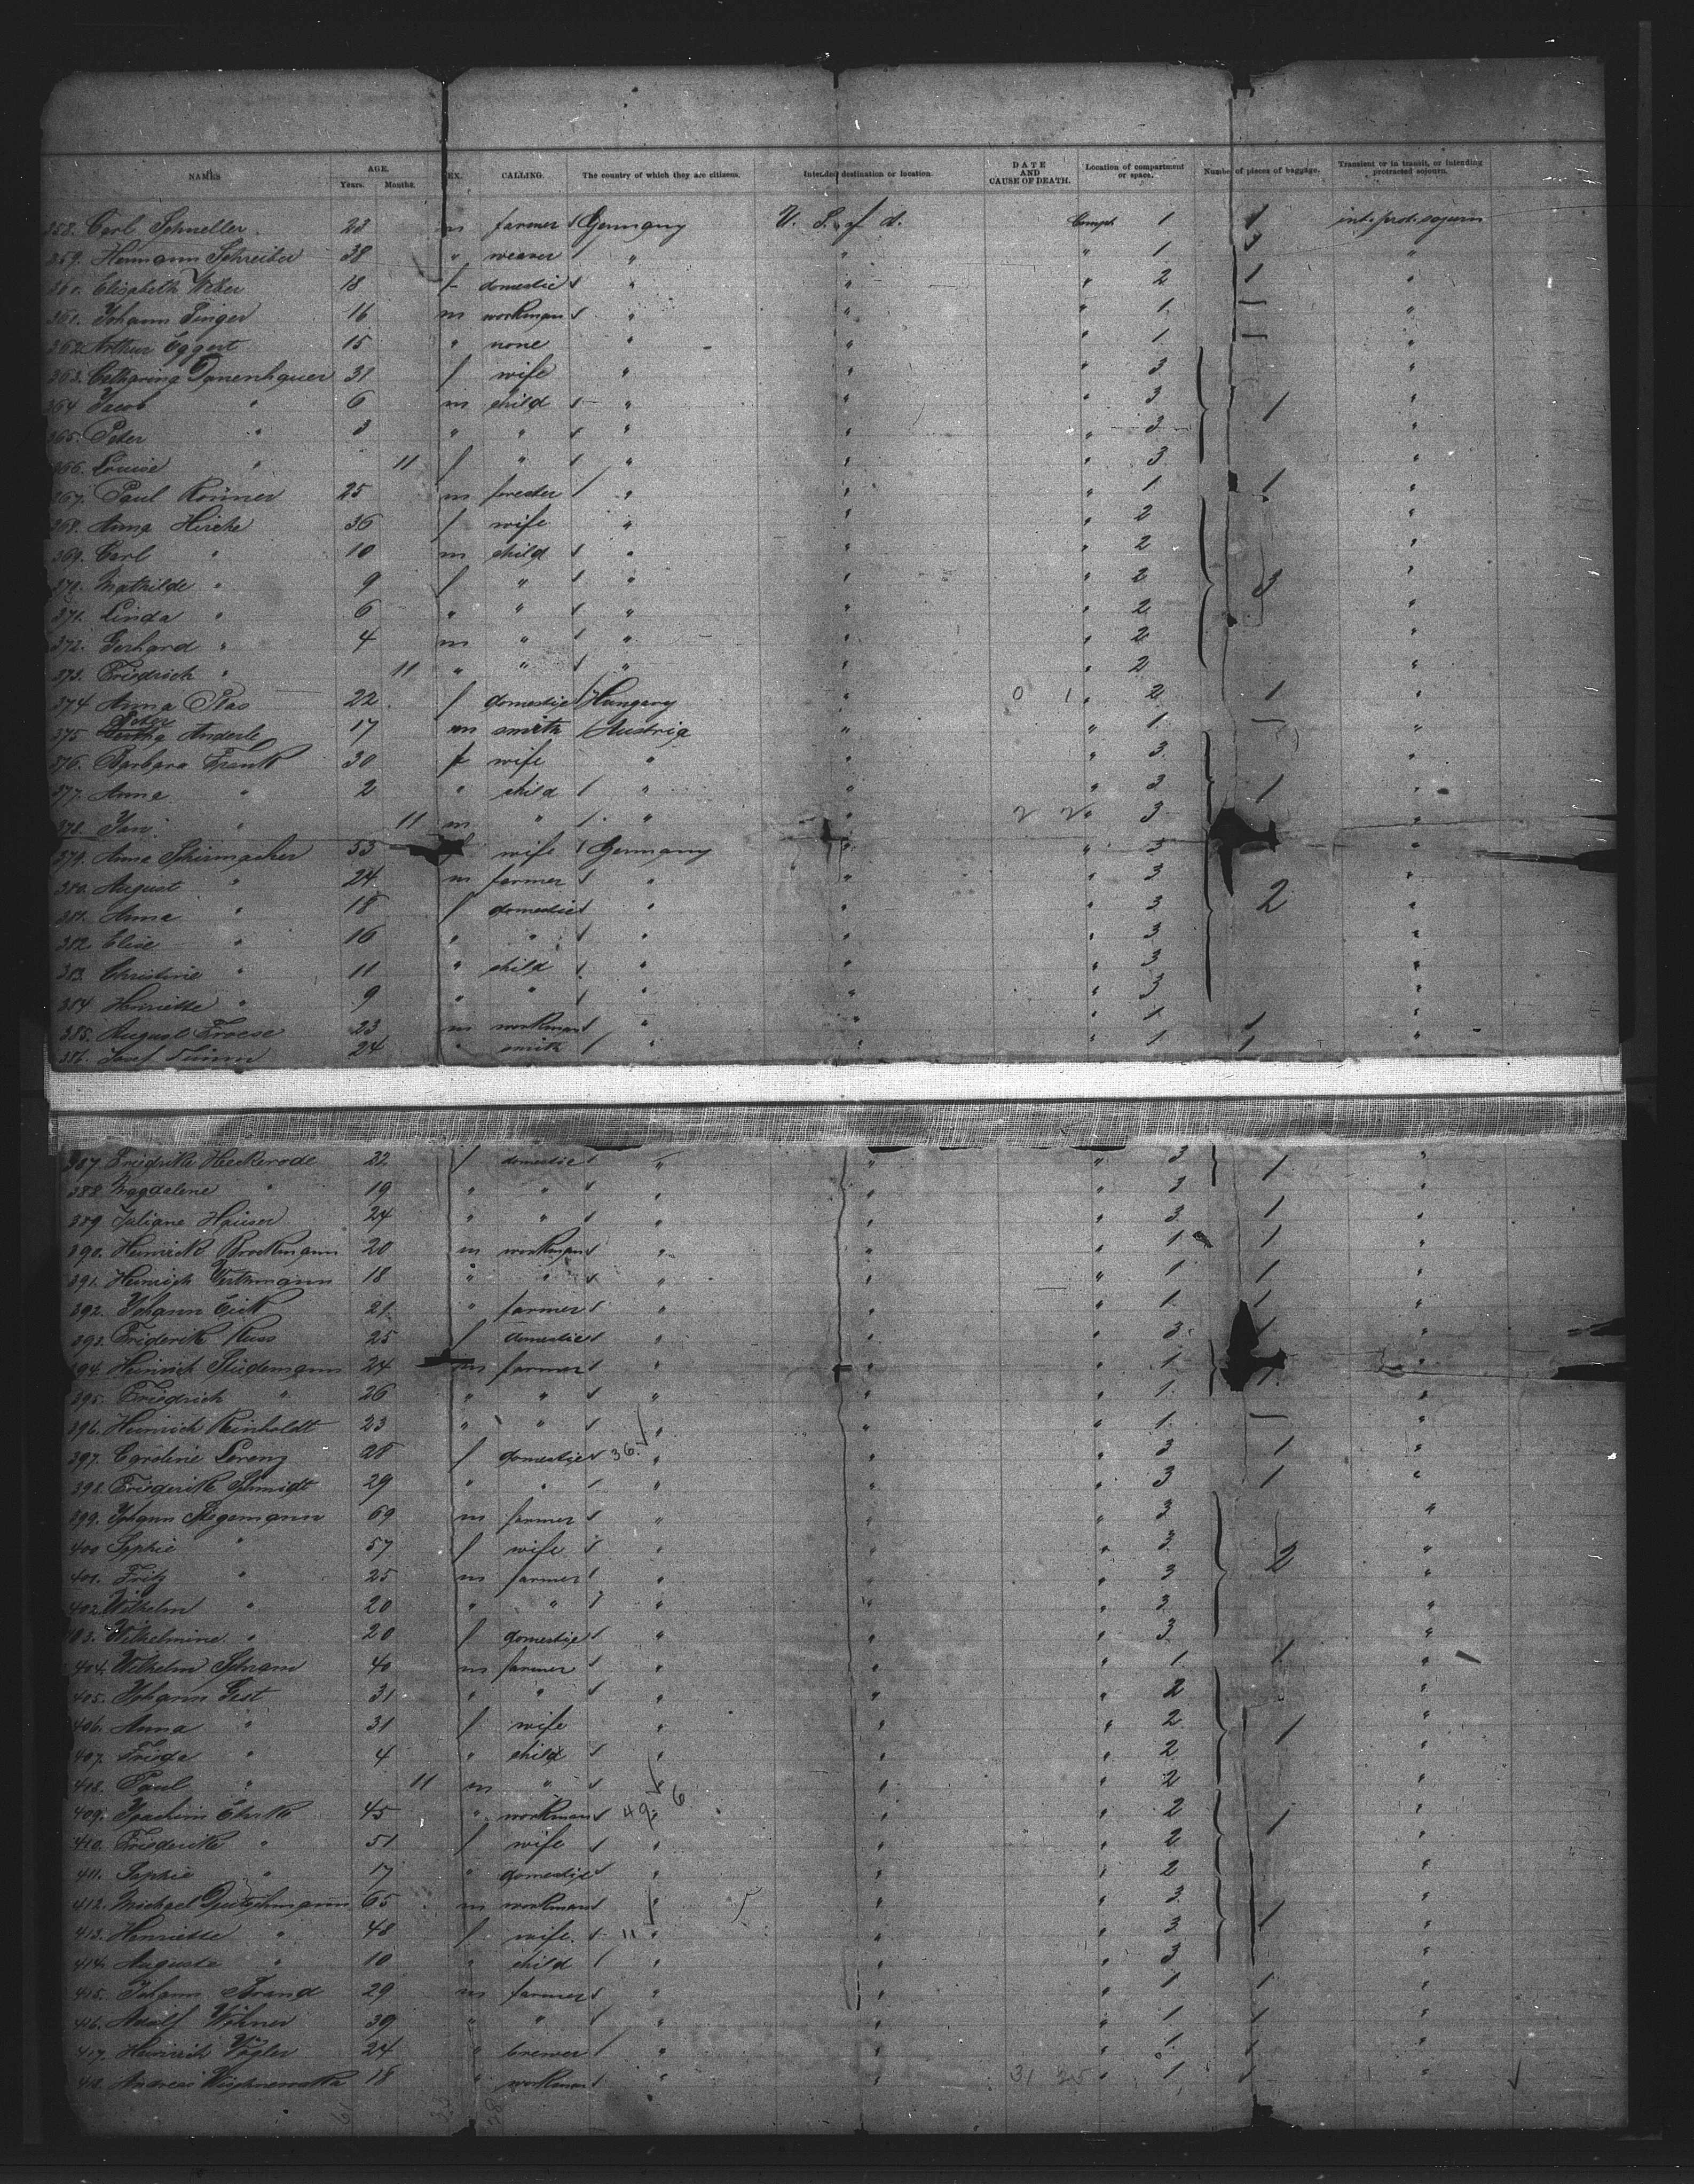 NAMES AGE. Years. Months. SEX. CALLING. The country of which they are citizens. Intended destination or location. DATE AND CAUSE OF DEATH. Location of compartment or space. Number of pieces of baggage. Transient or in transit, or intending protracted sojourn.
358. Carl Schneller 23 m farmer Germany U. S. of A. Compt. 1 1 int. prot. sojourn
359. Hermann Schreiber 38 " weaver " " " 1 3 "
360. Elisabeth Weber 18 f domestic " " " 2 1 "
361. Johann Singer 16 m workman " " " 1 — "
362. Arthur Eggert 15 " none " " " 1 — "
363. Catharina Danenhauer 31 f wife " " " 3 "
364 Jacob " 6 m child " " " 3 1 "
365. Peter " 3 " " " " " 3 "
366. Louise " 11 f " " " " 3 "
367. Paul Rönner 25 m forester " " " 1 1 "
368. Anna Hirche 36 f wife " " " 2 "
369. Carl " 10 m child " " " 2 "
370. Mathilde " 9 f " " " " 2 3 "
371. Linda " 6 " " " " " 2 "
372. Gerhard " 4 m " " " " 2 "
373. Friedrich " 11 " " " " " 2 "
374 Anna 22 f domestic Hungary " 0 1 " 2 1 "
375 Peter Anderle 17 m smith Austria " 1 — "
376. Barbara Frank 30 f wife " " 3 "
377. Anna " 2 " child " " " 3 1 "
378. Jan " 11 m " " " 2 2 " 3 "
379. Anna Schirmacher 53 f wife Germany " " 3 "
380. August " 24 m farmer " " " 3 "
381. Anna " 18 f domestic " " " 3 2 "
382. Elise " 16 " " " " " 3 "
383. Christine " 11 " child " " " 3 "
384 Henriette " 9 " " " " " 3 "
385. August Froese 23 m workman " " " 1 1 "
386. Josef Timm 24 " smith " " " 1 1 "
387. Friedrike Heckerode 22 f domestic " " " 3 1 "
388. Magdalene " 19 " " " " " 3 "
389. Juliane Häuser 24 " " " " " 3 1 "
390. Heinrich Brockmann 20 m workman " " " 1 1 "
391. Heinrich Werthmann 18 " " " " " 1 1 "
392. Johann Eick 21 " farmer " " " 1 1 "
393. Friderike Russ 25 f domestic " " " 3 1 "
394. Heinrich Studemann 24 m farmer " " " 1 1 "
395. Friedrich " 26 " " " " " 1 "
396. Heinrich Reinholdt 23 " " " " " 1 — "
397. Caroline Lorenz f domestic 36 " " " 3 1 "
398. Friederike Schmidt 29 " " " " " 3 1 "
399. Johann 69 m farmer " " " 3 "
400 Sophie " 57 f wife " " " 3 2 "
401. Fritz " 25 m farmer " " " 3 "
402 Wilhelm " 20 " " " " " 3 "
403. Wilhelmine " 20 f domestic " " " 3 "
404. Wilhelm Schram 40 m farmer " " " 1 1 "
405. Johann Gest 31 " " " " " 2 "
406. Anna " 31 f wife " " " 2 1 "
407. Frida " 4 " child " " " 2 "
408. Paul " 11 m " " " " 2 "
409. Joachim 45 " workman 49 6 " " 2 1 "
410. Friederike " 51 f wife " " " 2 "
411. Sophie " 17 " domestic " " " 2 "
412. Michael Deutschmann 65 m workman " " " 3 "
413. Henriette " 48 f wife 11 " " " 3 1 "
414. Auguste " 10 " child " " " 3 "
415. Johann Brand 29 m farmer " " " 1 1 "
416. Adolf Wöhner 39 " " " " " 1 1 "
417. Heinrich Vogler 24 " brewer " " " 1 1 "
418. Andreas 18 " workman " " 31 25 " 1 1 "